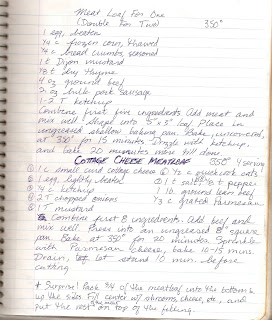 Meat Loaf For One
(Double For Two) 350°
1 egg, beaten
¼ c frozen corn, thawed
¼ c bread crumbs, seasoned
1 t Dijon mustard
⅛ t dry thyme
4 oz ground beef
2 oz bulk pork sausage
1-2 T ketchup
Combine first five ingredients. Add meat and
mix well. Shape into 5"x 3" loaf. Place in
ungreased shallow baking pan. Bake, uncovered,
at 350° for 15 minutes. Drizzle with ketchup,
and bake 20 minutes more till done.
COTTAGE CHEESE MEATLOAF 350° 4 serving
1 c small curd cottage cheese ½ c quick cook oats
1 egg, lightly beaten 1 t salt, ⅛ t pepper
¼ c ketchup 1 lb. ground lean beef
2 T chopped onions ⅓ c grated Parmesan
1 T mustard
Combine first 8 ingredients. Add beef and
mix well. Press into an ungreased 8" square
pan. Bake at 350° for 20 minutes. Sprinkle
with Parmesan cheese, bake 10-15 min.
Drain, let stand 10 min. before
cutting
+ Surprise! Pack ¾ of the meatloaf into the bottom &
up the sides. Fill center w/ shrooms, cheese, etc., and
put the rest on top of the filling.